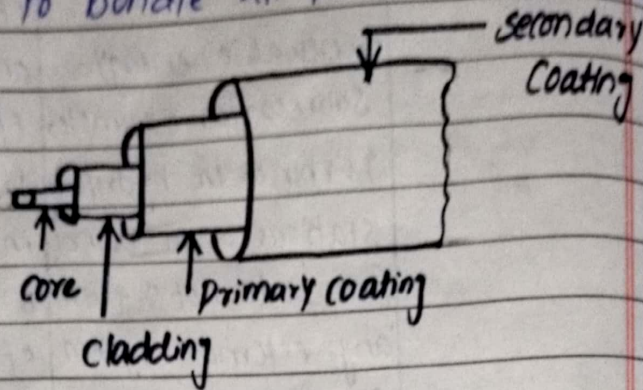 To bundle
secondary
coating
core
primary coating
cladding